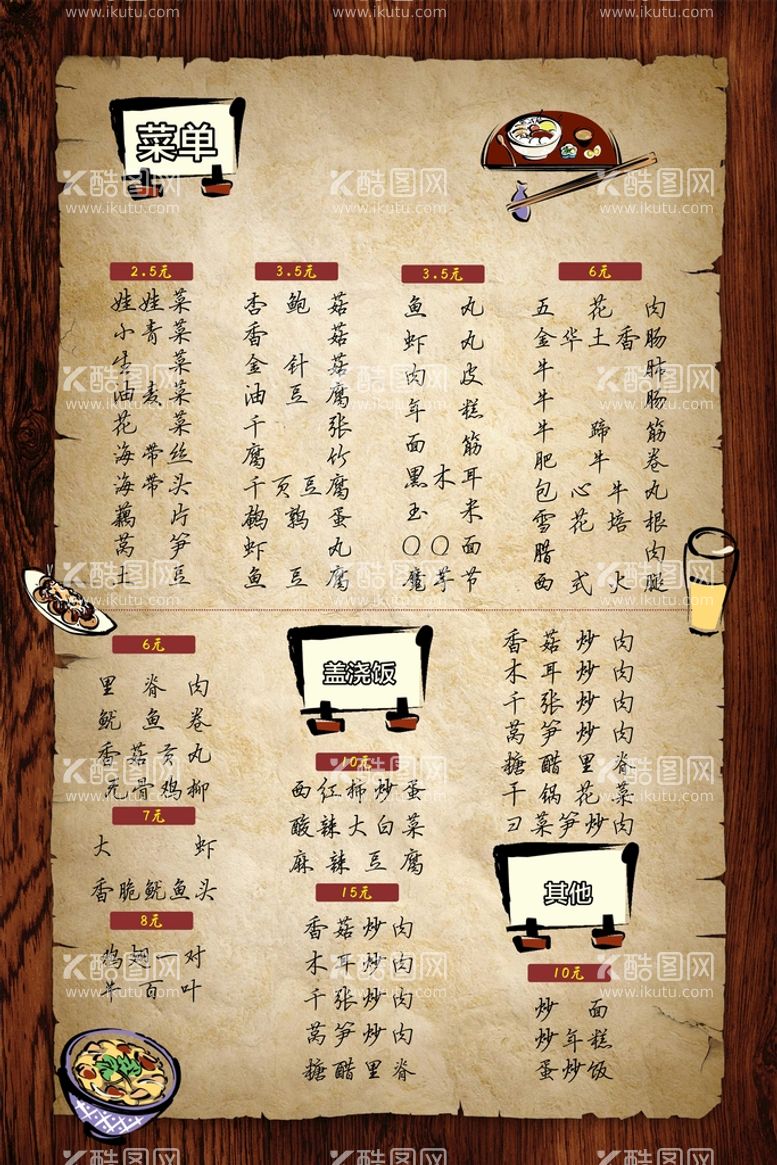 www.ikutu.com
菜单
酷图网
www.ikutu.com
2.5元
娃娃菜
小青菜
生菜
油麦菜
花菜
海带丝
海带头
藕片
莴笋
土豆
3.5元
杏鲍菇
香菇
金针菇
油豆腐
千张
腐竹
千页豆腐
鹌鹑蛋
虾丸
鱼豆腐
3.5元
鱼丸
虾丸
肉皮
年糕
面筋
黑木耳
玉米
QQ面
魔芋节
6元
五花肉
金华土香肠
牛肺
牛肠
牛蹄筋
肥牛卷
包心牛丸
雪花培根
腊肉
西式火腿
6元
里脊肉
鱿鱼卷
香菇贡丸
无骨鸡柳
7元
大虾
香脆鱿鱼头
8元
鸡翅一对
羊百叶
盖浇饭
10元
西红柿炒蛋
酸辣大白菜
麻辣豆腐
15元
香菇炒肉
木耳炒肉
千张炒肉
莴笋炒肉
糖醋里脊
香菇炒肉
木耳炒肉
千张炒肉
莴笋炒肉
糖醋里脊
干锅花菜
菜笋炒肉
其他
10元
炒面
炒年糕
蛋炒饭